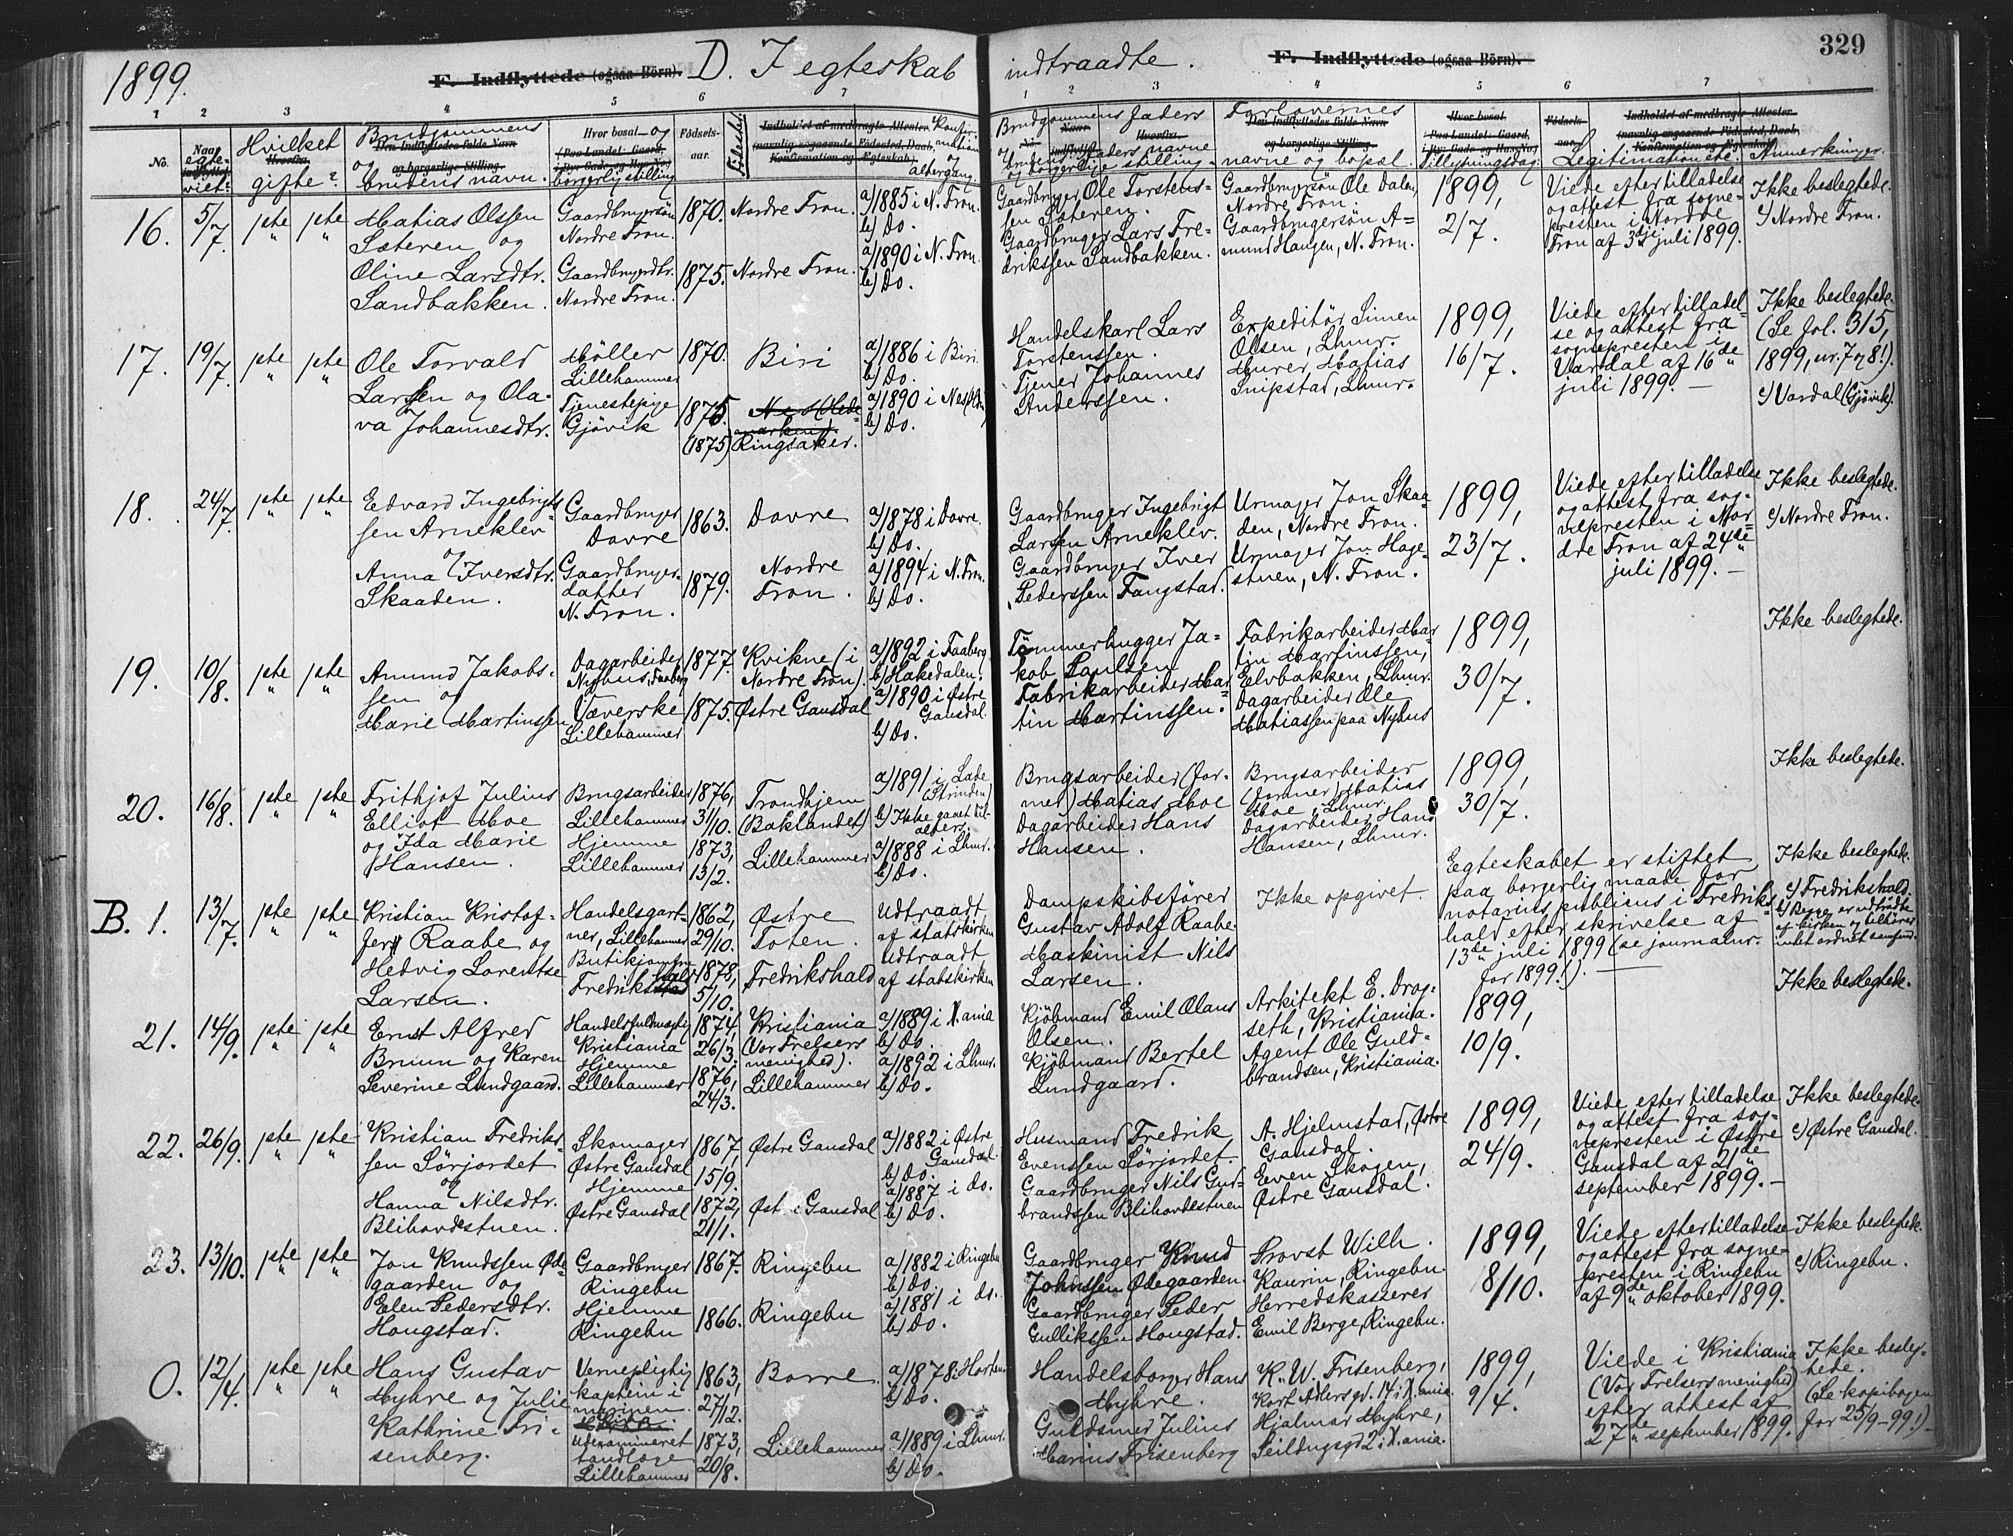 1899.
F. Indflyttede (ogsaa Börn).
D. I egteskab indtraadte.
F. Indflyttede (ogsaa Börn).
329
1 2 3 4 5 6 7
1 2 3 4 5 6 7
No.
Naar egteviet?
Hvilket gifte?
Brudgommens og brudens navn.
Hvor bosat og borgerlig stilling
Fødselsaar.
Fødested.
Konfirmation Altergang.
Brudgommens faders
Brudens faders navne og borgerlige stilling.
Forlovernes navne og bopæl.
Tillysningsdag.
Legitimation etc.
Anmerkninger.
16. 5/7. 1ste 1ste
Mathias Olssen
Sæteren og
Oline Larsdtr.
Sandbakken.
Gaardbrugersøn
Nordre Fron.
Gaardbrugerdtr.
Nordre Fron.
1870. Nordre Fron.
1875. Nordre Fron.
a) 1885 i N. Fron.
b) Do.
a) 1890 i N. Fron.
b) Do.
Gaardbruger Ole Torstens-
sen Sæteren.
Gaardbruger Lars Fre-
drikssen Sandbakken.
Gaardbrugersøn Ole Dalen,
Nordre Fron.
Gaardbrugersøn A-
mund Haugen, N. Fron.
1899,
2/7.
Viede efter tilladelse
og attest fra sogne-
presten i Nordre
Fron af 3die juli 1899.
Ikke beslegtede.
c) Nordre Fron.
17. 19/7. 1ste 1ste
Ole Torvald
Larssen og Ola-
va Johannesdtr.
Møller
Lillehammer
Tjenestepige
Gjøvik
1870. Biri
1876. Nes (Hede-
marken).
(1875) Ringsaker.
a) 1886 i Biri.
b) Do.
a) 1890 i Nes
b) Do.
Handelskarl Lars
Torstenssen.
Tjener Johannes
Anderssen.
Expeditør Simen
Olsen, Lhmr.
Murer Mathias
Snipstad, Lhmr.
1899,
16/7.
Viede efter tilladel-
se og attest fra
sognepresten i
Vardal af 16de
juli 1899. —
Ikke beslegtede.
(Se fol. 315,
1899, nr. 7 og 8!).
c) Vardal (Gjøvik).
18. 24/7. 1ste 1ste
Edvard Ingebrigt-
sen Arneklev
og
Anna Iversdtr.
Skaaden.
Gaardbruger
Dovre
Gaardbruger-
datter
N. Fron.
1863. Dovre
1879. Nordre
Fron.
a) 1878 i Dovre.
b) Do.
a) 1894 i N. Fron.
b) Do.
Gaardbruger Ingebrigt
Larsen Arneklev.
Gaardbruger Iver
Pederssen Fangstad.
Urmager Jon Skaa-
den, Nordre Fron.
Urmager Jon Hage-
stuen, N. Fron.
1899,
23/7.
Viede efter tilladelse
og attest fra sog-
nepresten i Nor-
dre Fron af 24de
juli 1899. —
Ikke beslegtede.
c) Nordre Fron.
19. 10/8. 1ste 1ste
Amund Jakobs-
sen og
Marie Martinssen
Dagarbeider
Nyhus, Faaberg
Væverske
Lillehammer
1877. Kvikne (i
Nordre Fron).
1875. Østre Gausdal
a) 1892 i Faaberg
b) Hakedalen.
a) 1890 i Østre
Gausdal.
b) Do.
Tømmerhugger Ja-
kob Paulsen
Fabrikarbeider Mar-
tin Martinssen.
Fabrikarbeider Mar-
tin Martinssen,
Elvbakken, Lhmr.
Dagarbeider Ole
Mathiassen paa Nyhus
1899,
30/7.
Ikke beslegtede.
20. 16/8. 1ste 1ste
Frithjof Julius
Elliot Moe
og Ida Marie
Hansen.
Brugsarbeider
Lillehammer
Hjemme
Lillehammer
1876,
31/10.
1873,
13/2.
Trondhjem
(Baklandet)
Lillehammer
a) 1891 i Lade
(Strinden)
b) Ikke gaaet til-
alters.
a) 1888 i Lhmr.
b) Do.
Brugsarbeider (for-
mer) Mathias Moe
Dagarbeider Hans
Hansen.
Brugsarbeider
(former) Mathias
Moe, Lhmr.
Dagarbeider Hans
Hansen, Lhmr.
1899,
30/7.
Ikke beslegtede.
B. 1. 13/7. 1ste 1ste
Kristian Kristof-
fer Raabe og
Hedvig Lorentse
Larsen.
Handelsgart-
ner, Lillehammer
Butikjomfru
Fredrikshald
1862,
29/10.
1878,
5/10.
Østre
Toten.
Fredrikshald
Udtraadt
af statskirken
Udtraadt
af statskirken
Dampskibsfører
Gustav Adolf Raabe.
Maskinist Nils
Larsen.
Ikke opgivet.
Egteskabet er stiftet
paa borgerlig maade for
notarius publicus i Fredriks-
hald efter skrivelse af
13de juli 1899 (se journalnr.
for 1899!). —
Ikke beslegtede.
c) Fredrikshald.
b) Begge er udtraadte
af kirken og tilhører
intet ordnet samfund.
21. 14/9. 1ste 1ste
Ernst Alfred
Bruun og Karen
Severine Lundgaard.
Handelsfuldmægtig
Kristiania
Hjemme
Lillehammer
1874,
26/3.
1876,
24/3.
Kristiania
(Vor Frelsers
menighed).
Lillehammer
a) 1889 i X.ania
b) Do.
a) 1892 i Lhmr.
b) Do.
Kjøbmand Emil Olaus
Olsen.
Kjøbmand Bertel
Lundgaard.
Arkitekt E. Drog-
seth, Kristiania.
Agent Ole Guld-
brandsen, Kristiania.
1899,
10/9.
Ikke beslegtede.
22. 26/9. 1ste 1ste
Kristian Fredriks-
sen Sørjordet
og
Hanna Nilsdtr.
Blihovdestuen.
Skomager
Østre Gausdal
Hjemme
Østre Gausdal
1867,
15/9.
1872,
21/1.
Østre Gausdal
Østre Gausdal
a) 1882 i Østre
Gausdal.
b) Do.
a) 1887 i do.
b) Do.
Husmand Fredrik
Evenssen Sørjordet.
Gaardbruger Nils Gud-
brandssen Blihovdestuen
A. Hjelmstad, Østre
Gausdal.
Even Skogen,
Østre Gausdal.
1899,
24/9.
Viede efter tilladelse
og attest fra sog-
nepresten i Østre
Gausdal af 21de
september 1899. —
Ikke beslegtede.
c) Østre Gausdal.
23. 13/10. 1ste 1ste
Jon Knudssen Øde-
gaarden og
Elen Pedersdtr.
Hougstad.
Gaardbruger
Ringebu
Hjemme
Ringebu
1867. Ringebu
1866. Ringebu
a) 1882 i Ringebu
b) Do.
a) 1881 i do.
b) Do.
Gaardbruger Knud
Johnssen Ødegaarden.
Gaardbruger Peder
Gullikssen Hougstad.
Provst Wilh.
Kaurin, Ringebu.
Herredskasserer
Emil Berge, Ringebu.
1899,
8/10.
Viede efter tilladelse
og attest fra sogne-
presten i Ringebu
af 9de oktober 1899.
Ikke beslegtede.
c) Ringebu.
0. 12/4. 1ste 1ste
Hans Gustav
Myhre og Julie
Kathrine Fri-
senberg.
Vernepligtig
kaptein i
marinen.
Uexamineret
tandlæge
Lillehammer
1863,
27/12.
1873,
20/8.
Borre.
Lillehammer
a) 1878 i Horten
b) Do.
a) 1889 i Lhmr.
b) Do.
Handelsborger Hans
Myhre.
Guldsmed Julius
Marius Frisenberg
K. W. Frisenberg,
Kort Adlersgd. 14 i X.ania.
Hjalmar Myhre,
Seildugsgd 2 i X.ania.
1899,
9/4.
Viede i Kristiania
(Vor Frelsers menighed)
efter attest af
27de september 1899.
Ikke besleg-
tede.
(Se kopibogen
for 25/9-99!)